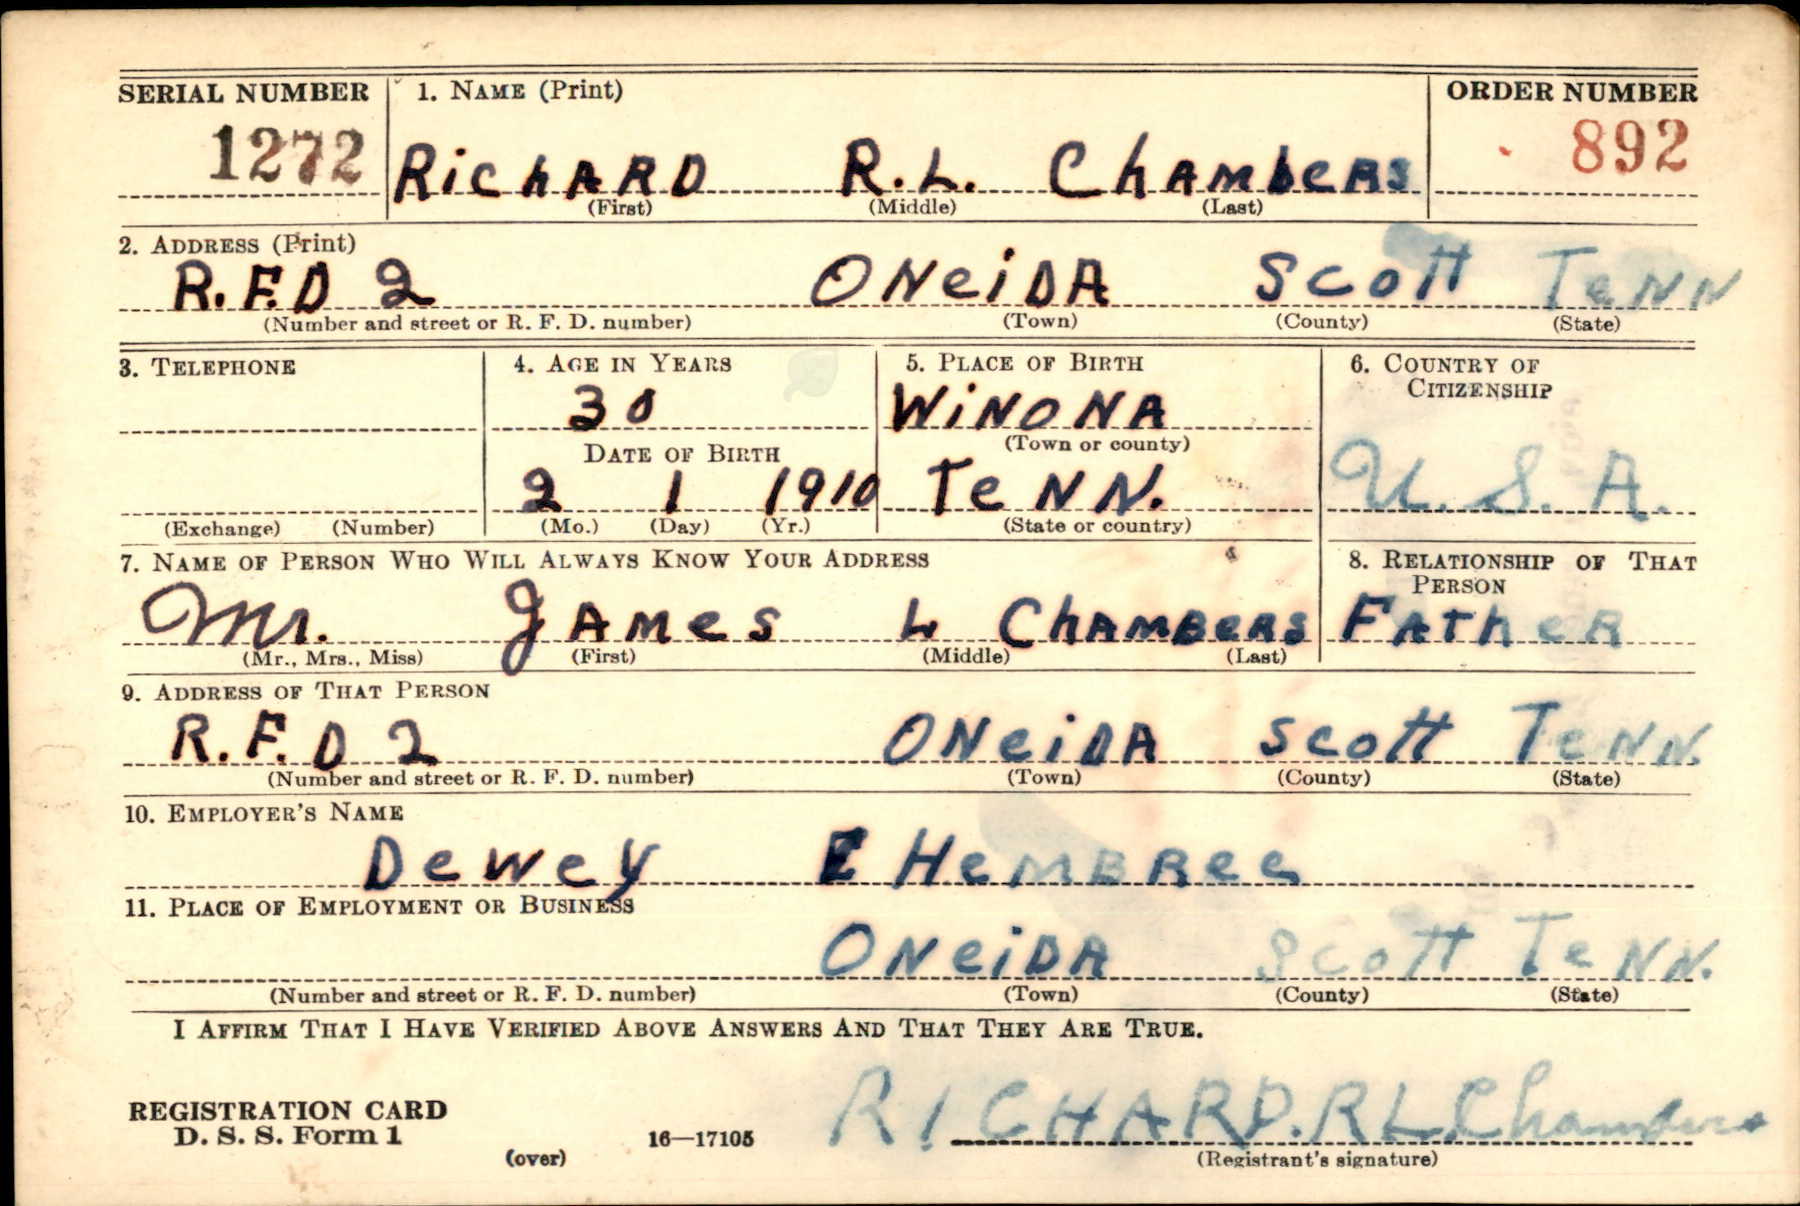 SERIAL NUMBER 1. NAME (Print) ORDER NUMBER
1272 RichARD R.L. ChAMbeRS 892
(First) (Middle) (Last)
2. ADDRESS (Print)
R.F.D 2 ONeiDA Scott TeNN
(Number and street or R. F. D. number) (Town) (County) (State)
3. TELEPHONE 4. AGE IN YEARS 5. PLACE OF BIRTH 6. COUNTRY OF CITIZENSHIP
30 WiNONA
(Town or county)
DATE OF BIRTH
2 1 1910 TeNN. U. S. A.
(Exchange) (Number) (Mo.) (Day) (Yr.) (State or country)
7. NAME OF PERSON WHO WILL ALWAYS KNOW YOUR ADDRESS 8. RELATIONSHIP OF THAT PERSON
Mr. JAMes L ChAMBeRS FATheR
(Mr., Mrs., Miss) (First) (Middle) (Last)
9. ADDRESS OF THAT PERSON
R.F.D 2 ONeiDA Scott TeNN.
(Number and street or R. F. D. number) (Town) (County) (State)
10. EMPLOYER'S NAME
Dewey E HeMBRee
11. PLACE OF EMPLOYMENT OR BUSINESS
ONeiDA Scott TeNN.
(Number and street or R. F. D. number) (Town) (County) (State)
I AFFIRM THAT I HAVE VERIFIED ABOVE ANSWERS AND THAT THEY ARE TRUE.
RICHARD. R L Chambers
REGISTRATION CARD
D. S. S. Form 1 16—17105
(over) (Registrant's signature)